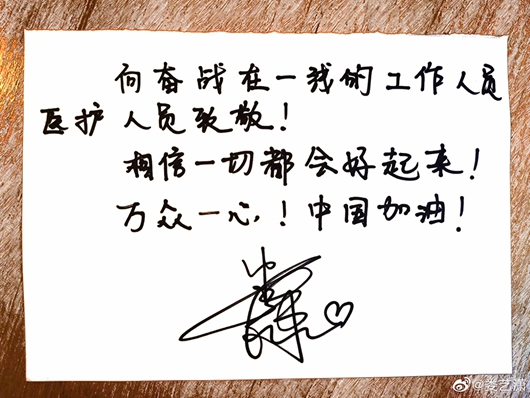 向奋战在一线的工作人员
医护人员致敬!
相信一切都会好起来!
万众一心!中国加油!
@娄艺潇